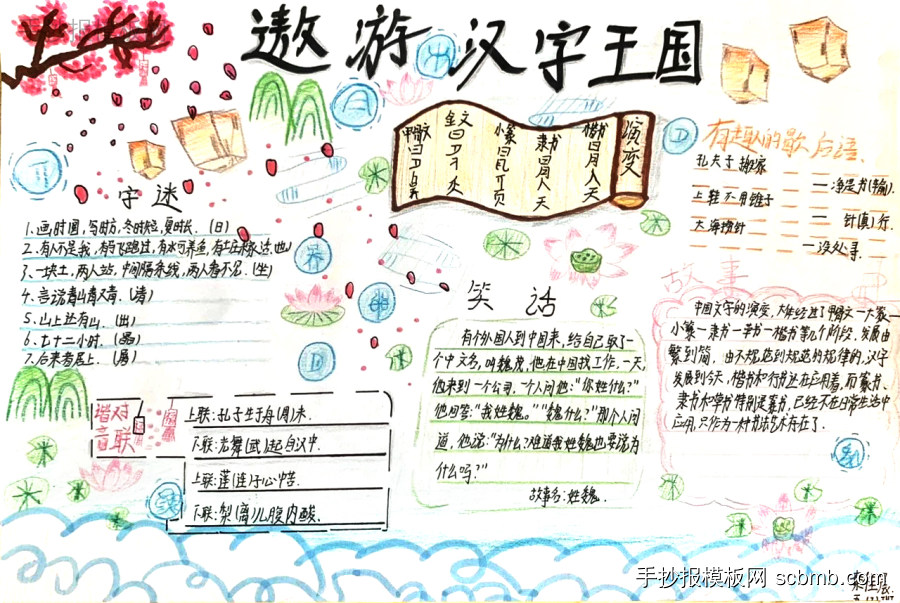 遨游汉字王国
演变
楷书 日月人天
隶书 日月人天
小篆
甲骨文
字迷
1.画时圆,写时方,冬时短,夏时长.(日)
3.一块土,两人站,中间隔条线,两人看不见.(坐)
4.言说青山青又青.(请)
5.山上还有山.(出)
6.七十二小时.(晶)
7.后来者居上.(屠)
谐音对联
上联:孔子生于舟(周)末.
下联:光舞(武)起自汉中.
上联:莲(连)子心中苦.
下联:梨(离)儿腹内酸.
笑话
有个外国人到中国来,给自己取了一
个中文名,叫魏茂,他在中国找工作.一天,
他来到一个公司,一个人问他:“你姓什么?”
他回答:“我姓魏。”“魏什么?”那个人问
道,他说:“为什么?难道我姓魏也要说为
什么吗?”
故事名:姓魏.
有趣的歇后语.
孔夫子搬家
一净是书(输).
一针(真)行.
大海捞针
一没处寻.
故事
中国文字的演变,大体经过了甲骨文一大篆一
小篆一隶书一草书一楷书等几个阶段,发展由
繁到简,由不规范到规范的规律的,汉字
发展到今天,楷书和行书还在应用着,而篆书、
隶书和草书特别是篆书,已经不在日常生活中
应用,只作为一种书法艺术存在了.
手抄报模板网 scbmb.com